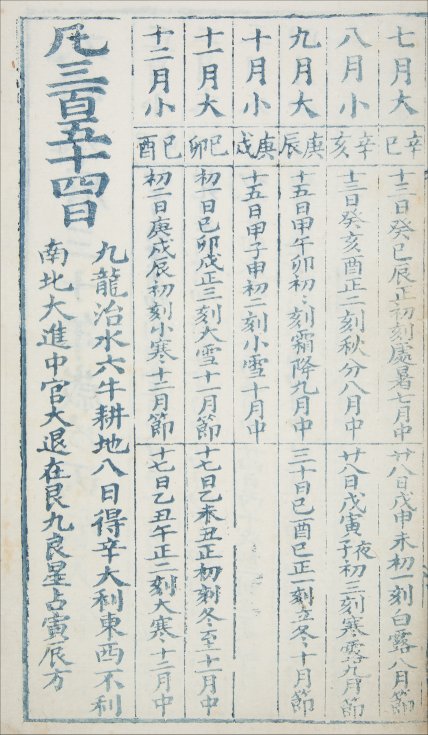 七月大
辛巳
十三日癸巳辰正初刻處暑七月中
廿八日戊申未初一刻白露八月節
八月小
辛亥
十三日癸亥酉正二刻秋分八月中
廿八日戊寅夜子初三刻寒露九月節
九月大
庚辰
十五日甲午卯初〻刻霜降九月中
三十日己酉巳正一刻立冬十月節
十月小
庚戌
十五日甲子申初二刻小雪十月中
十一月大
己卯
初一日己卯戌正三刻大雪十一月節
十七日乙未丑正初刻冬至十一月中
十二月小
己酉
初二日庚戌辰初刻小寒十二月節
十七日乙丑午正二刻大寒十二月中
凡三百五十四日
九龍治水六牛耕地八日得辛大利東西不利
南北大進中官大退在艮九良星占寅辰方